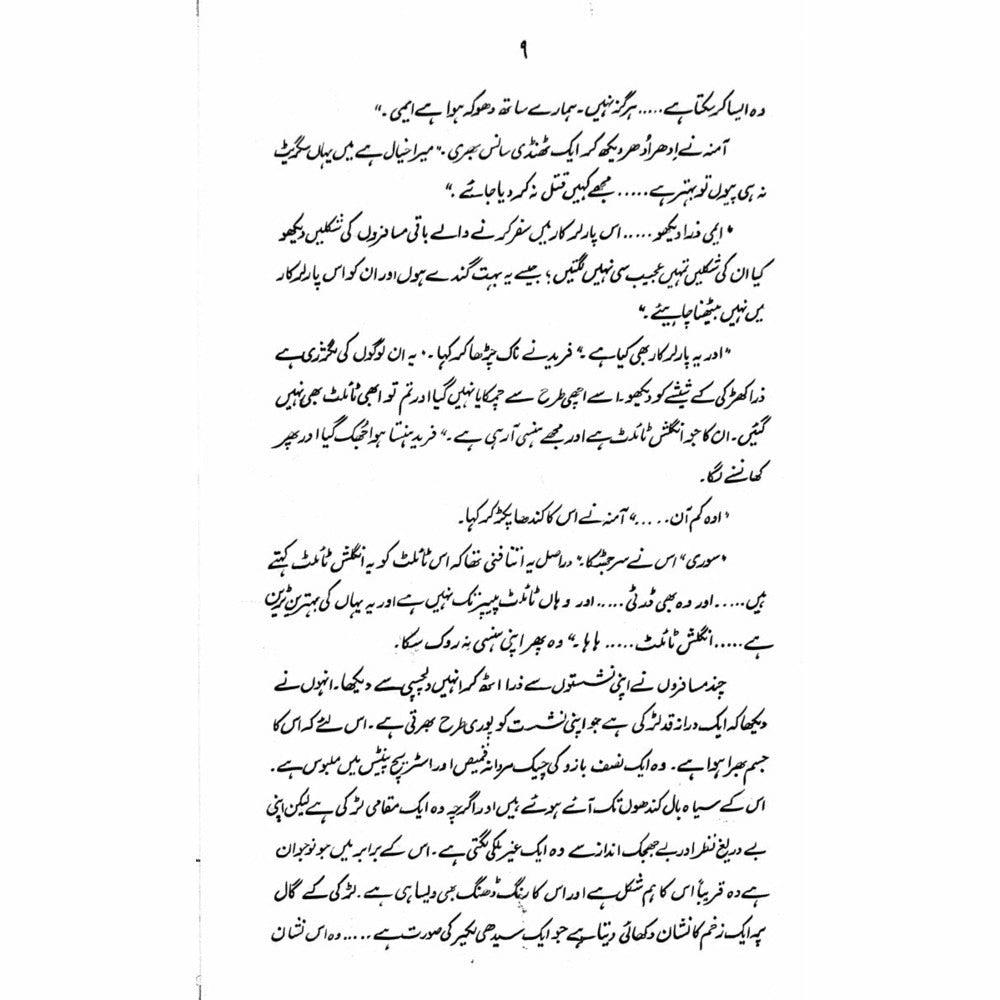 ۹
وہ ایسا کر سکتا ہے ..... ہرگز نہیں۔ ہمارے ساتھ دھوکہ ہوا ہے ایمی۔"
آمنہ نے اِدھر اُدھر دیکھ کر ایک ٹھنڈی سانس بھری۔ "میرا خیال ہے میں یہاں سگریٹ
نہ ہی پیوں تو بہتر ہے ..... مجھے کہیں قتل نہ کر دیا جائے۔"
"ایمی ذرا دیکھو ..... اس پارلر کار میں سفر کرنے والے باقی مسافروں کی شکلیں دیکھو
کیا ان کی شکلیں تمہیں عجیب سی نہیں لگتیں؛ جیسے یہ بہت گندے ہوں اور ان کو اس پارلر کار
میں نہیں بیٹھنا چاہیئے۔"
"اور یہ پارلر کار بھی کیا ہے۔" فرید نے ناک چڑھا کر کہا۔ "یہ ان لوگوں کی لگژری ہے
ذرا کھڑکی کے شیشے کو دیکھو۔ اسے اچھی طرح سے چمکایا نہیں گیا اور تم تو ابھی ٹائلٹ بھی نہیں
گئیں۔ ان کا جو انگلش ٹائلٹ ہے اور مجھے ہنسی آ رہی ہے۔" فرید ہنستا ہوا جُھک گیا اور پھر
کھانسنے لگا۔
"اوہ کم آن ....." آمنہ نے اس کا کندھا پکڑ کر کہا۔
"سوری" اس نے سر جھٹکا۔ "دراصل یہ اتنا فنی تھا کہ اس ٹائلٹ کو یہ انگلش ٹائلٹ کہتے
ہیں ..... اور وہ بھی ڈرٹی ..... اور وہاں ٹائلٹ پیپر تک نہیں ہے اور یہ یہاں کی بہترین ٹرین
ہے ..... انگلش ٹائلٹ ..... ہاہا۔" وہ پھر اپنی ہنسی نہ روک سکا۔
چند مسافروں نے اپنی نشستوں سے ذرا اٹھ کر انہیں دلچسپی سے دیکھا۔ انہوں نے
دیکھا کہ ایک دراز قد لڑکی ہے جو اپنی نشست کو پوری طرح بھرتی ہے۔ اس لئے کہ اس کا
جسم بھرا ہوا ہے۔ وہ ایک نصف بازو کی چیک مردانہ قمیض اور اسٹریچ پینٹس میں ملبوس ہے۔
اس کے سیاہ بال کندھوں تک آئے ہوئے ہیں اور اگرچہ وہ ایک مقامی لڑکی ہے لیکن اپنی
بے دریغ نظر اور بے جھجک انداز سے وہ ایک غیر ملکی لگتی ہے۔ اس کے برابر میں جو نوجوان
ہے وہ قریباً اس کا ہم شکل ہے اور اس کا رنگ ڈھنگ بھی ویسا ہی ہے۔ لڑکی کے گال
پہ ایک زخم کا نشان دکھائی دیتا ہے جو ایک سیدھی لکیر کی صورت ہے ..... وہ اس نشان